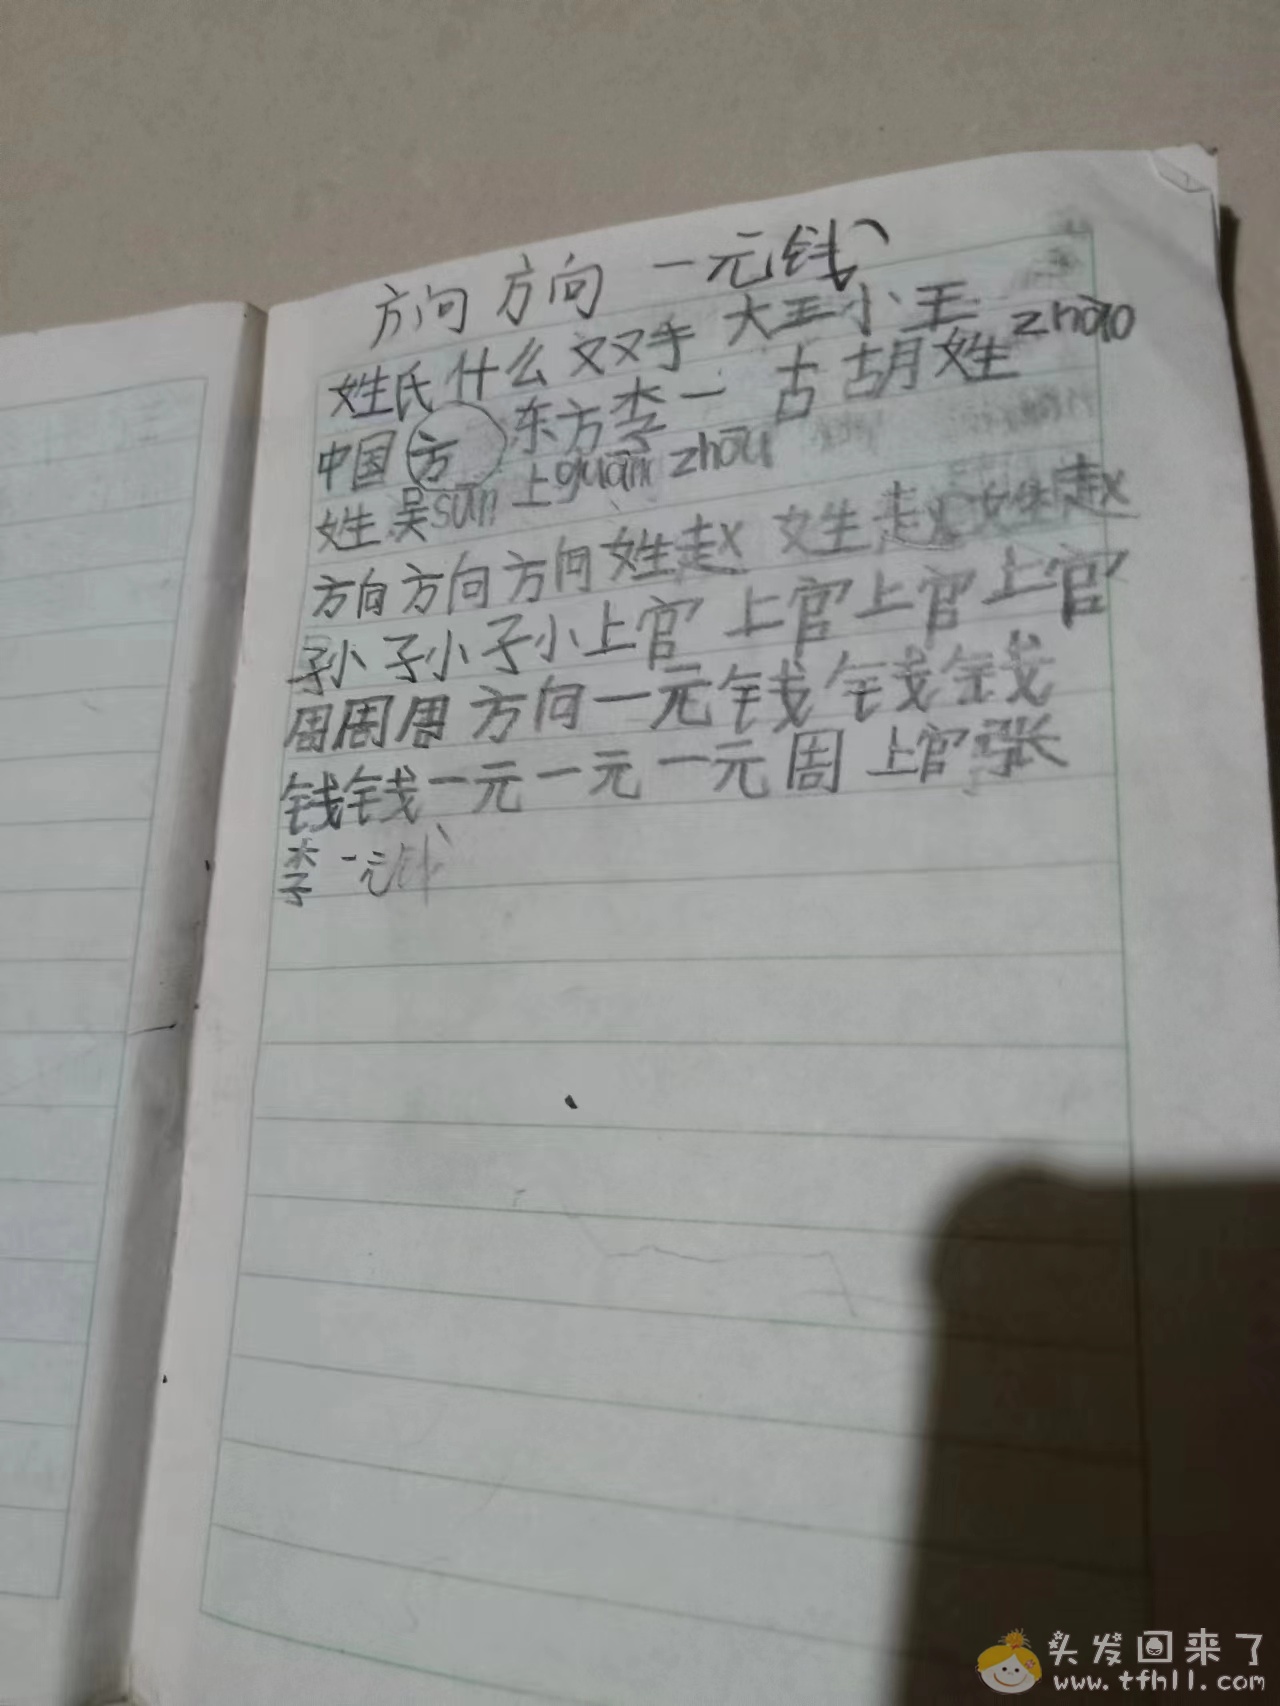 方向 方向 一元钱
姓氏 什么 双双手 大王小王
中国 方 东方 李一 古 胡 姓 zhào
姓 吴 sūn 上guān zhōu
方向 方向 方向 姓赵 姓赵 姓赵
孙 孙 孙 上官 上官 上官 上官
周 周 周 方向 一元钱 钱 钱
钱 钱 一元 一元 一元 周 上官 张
李 一元
头发回来了
www.tfhll.com